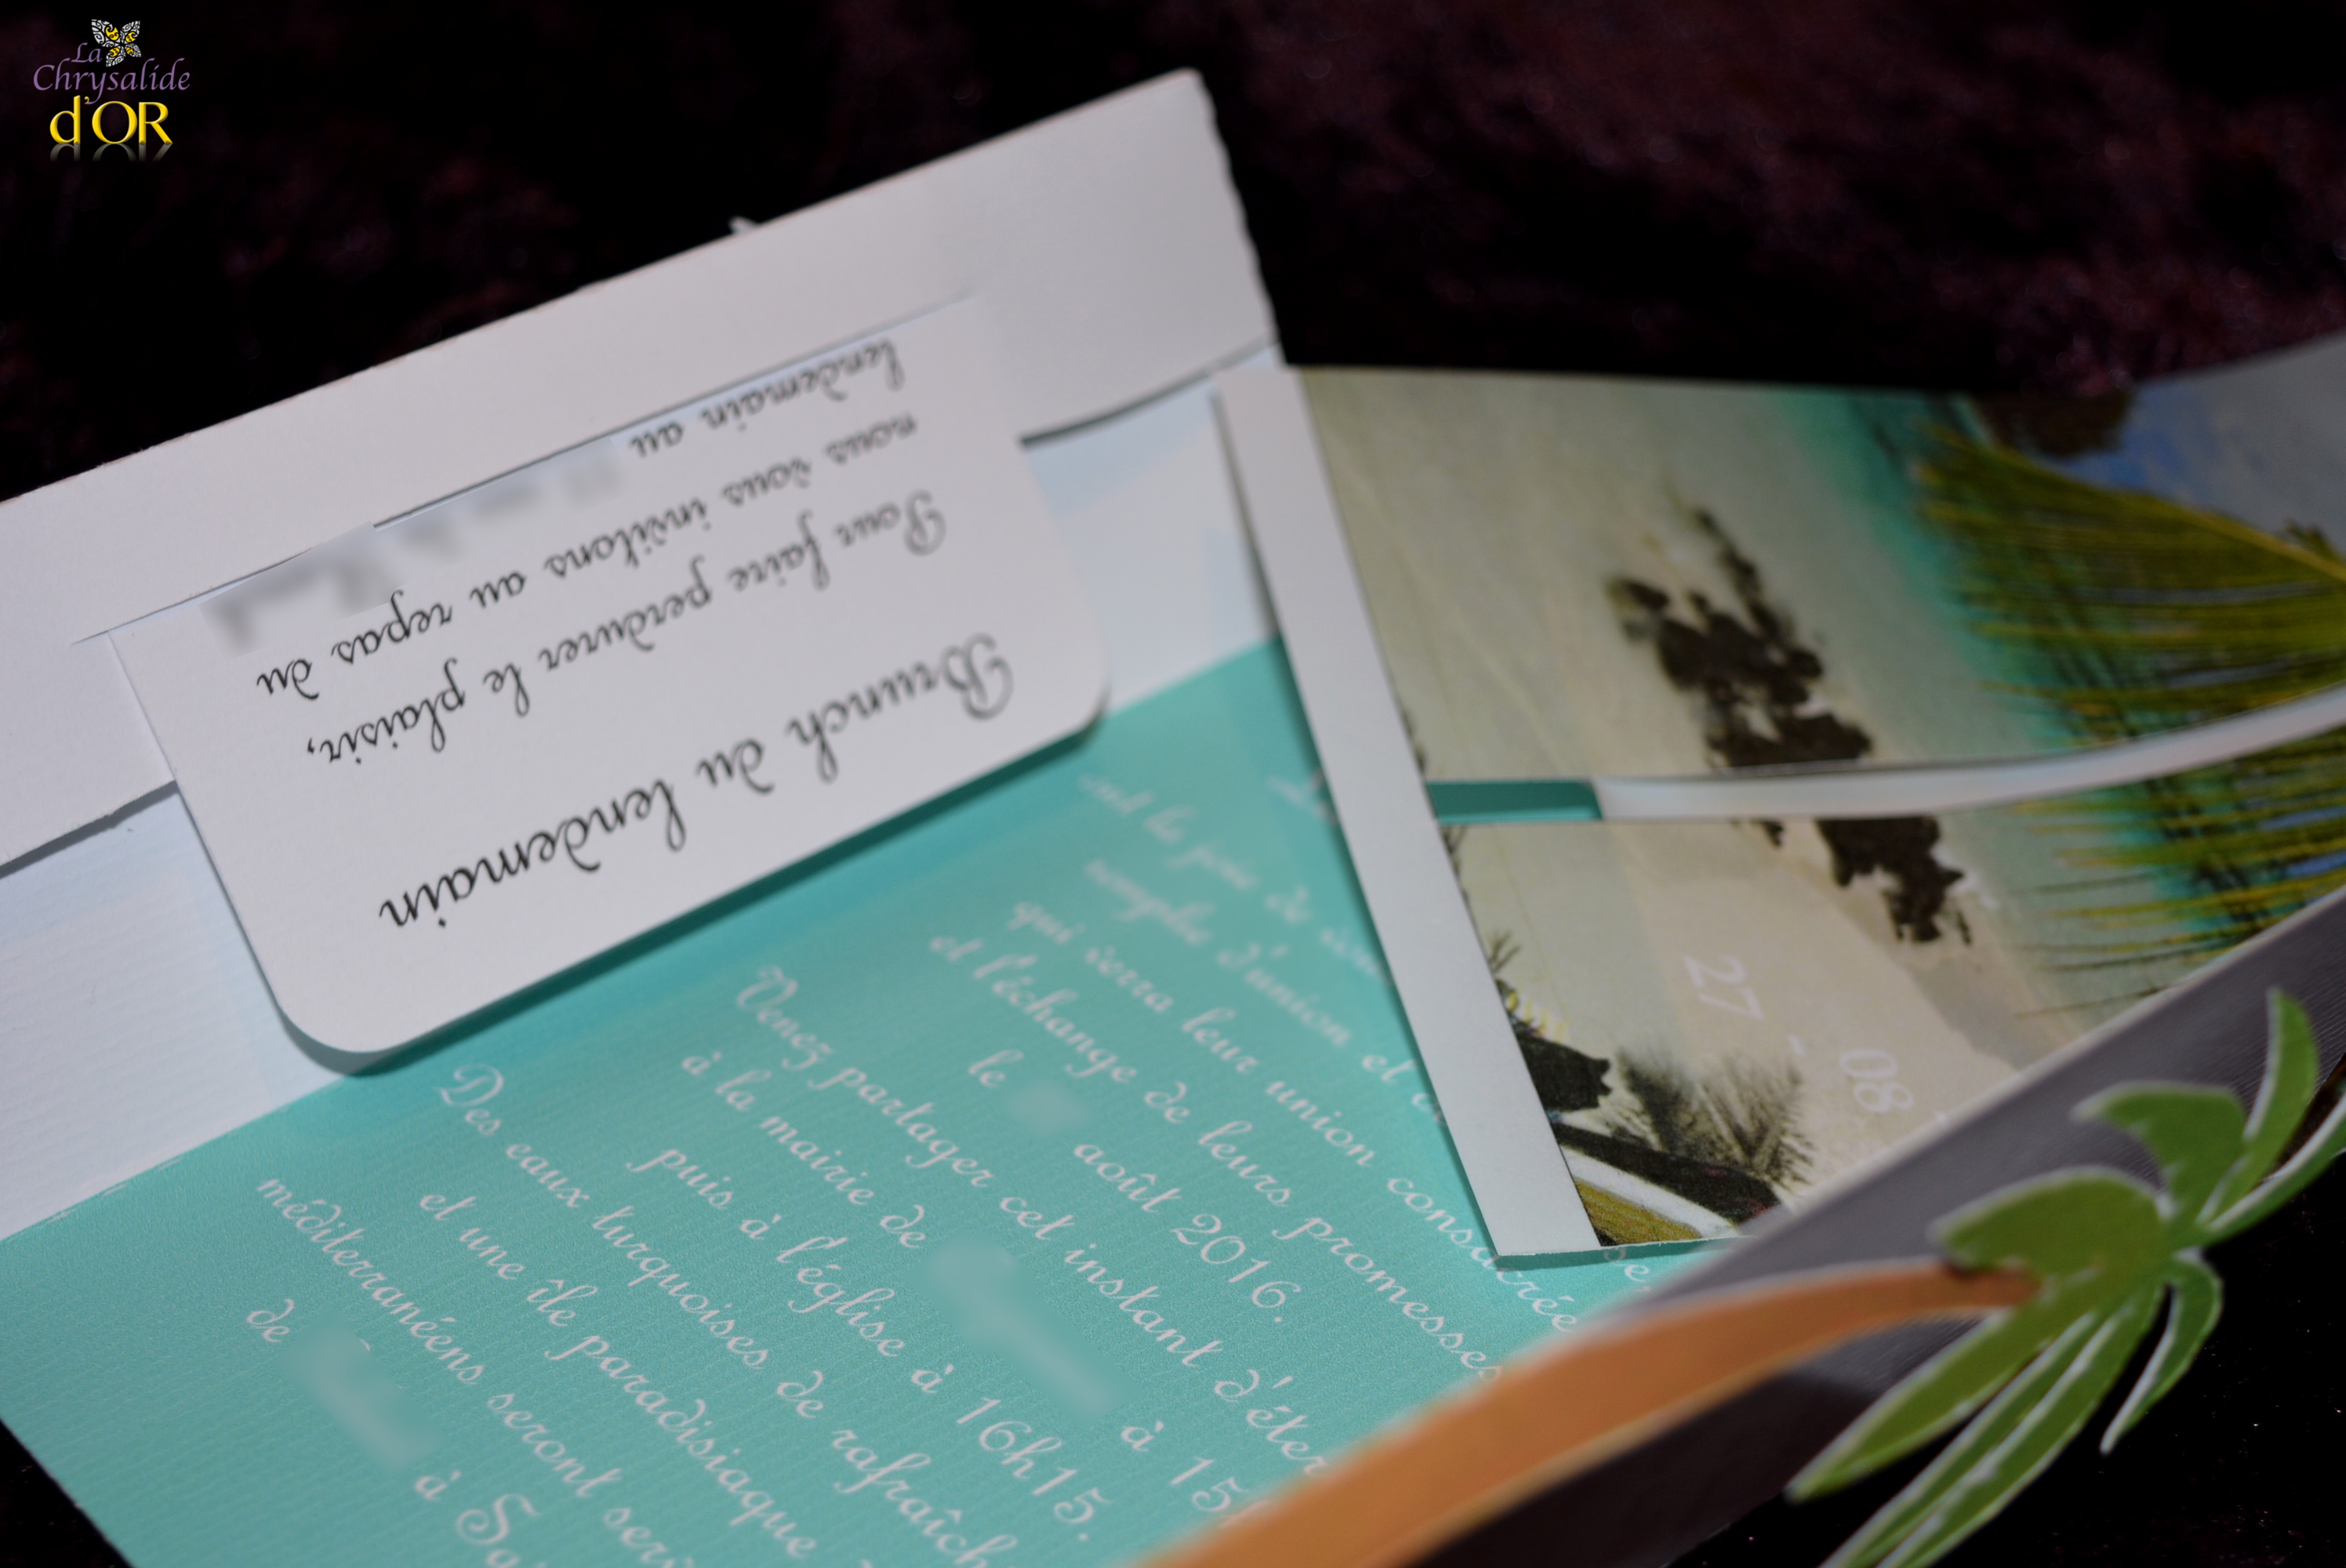 La
Chrysalide
d'OR
Brunch du lendemain
Pour faire perdurer le plaisir,
nous vous invitons au repas du
lendemain au
ont la joie de
remplie d'union et
qui verra leur union consacrée
et l'échange de leurs promesses
le août 2016.
Venez partager cet instant
à la mairie de à
puis à l'église à 16h15.
Des eaux turquoises de
et une île paradisiaque
méditerranéens seront
de à
27 - 08